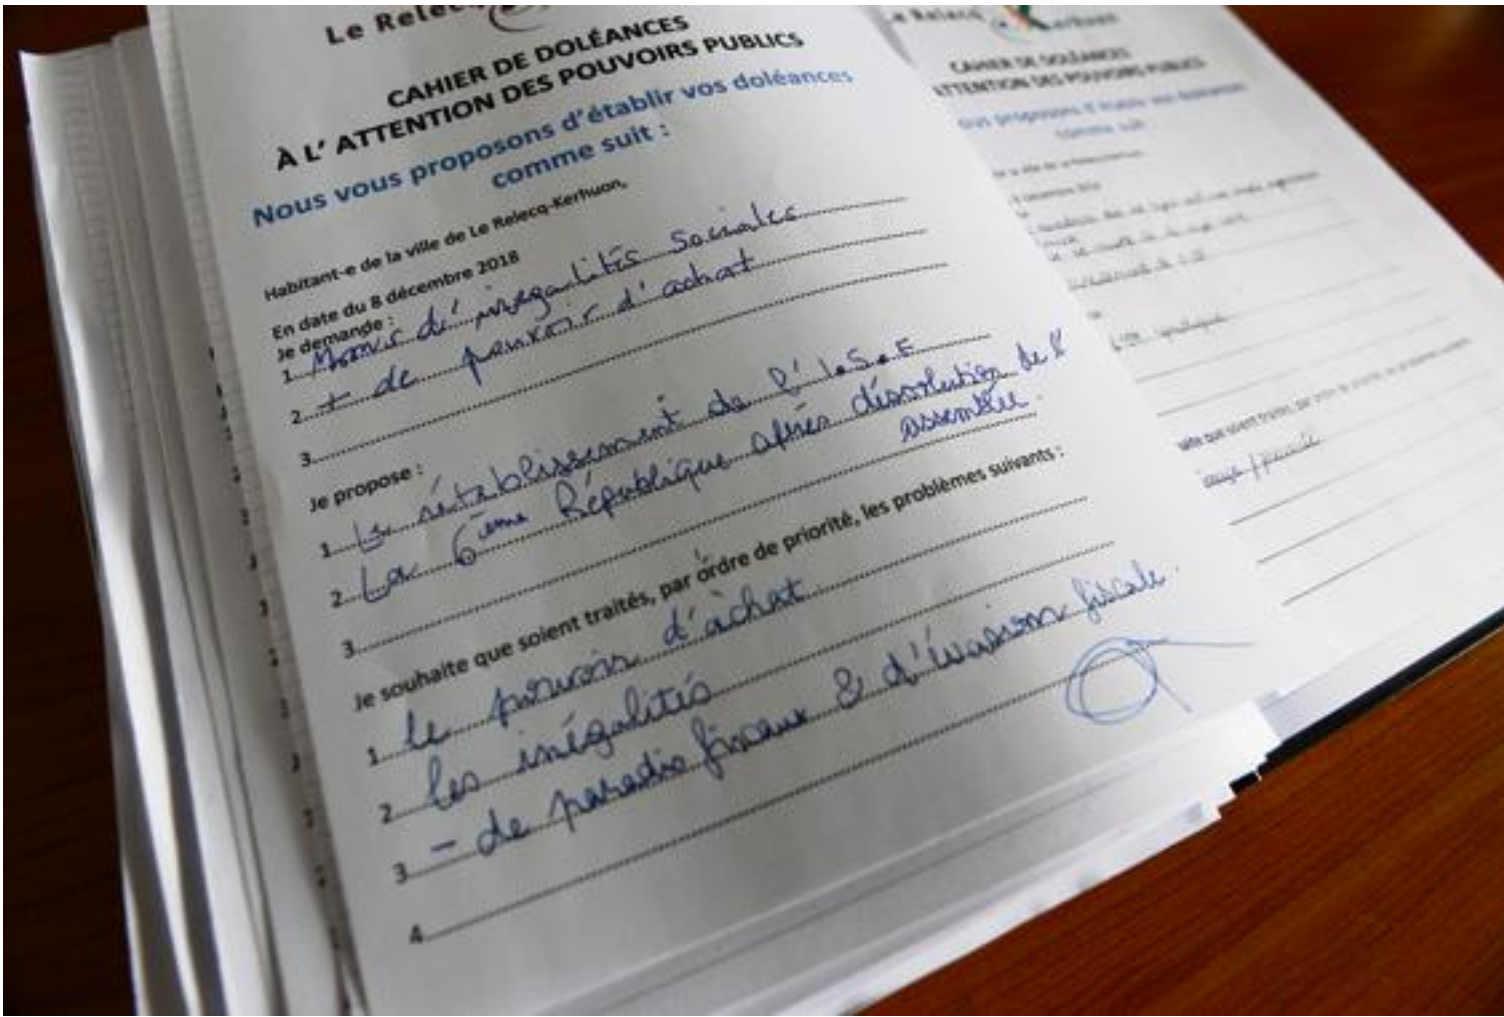 Le Relecq
CAHIER DE DOLÉANCES
À L' ATTENTION DES POUVOIRS PUBLICS
Nous vous proposons d'établir vos doléances
comme suit :
Habitant-e de la ville de Le Relecq-Kerhuon,
En date du 8 décembre 2018
Je demande :
1. Moins d'inégalités sociales
2. + de pouvoir d'achat
3.
Je propose :
1. Le rétablissement de l'I.S.F
2. La 6ème République après dissolution de l'
assemblée.
3.
Je souhaite que soient traités, par ordre de priorité, les problèmes suivants :
1. le pouvoir d'achat
2. les inégalités
3. - de paradis fiscaux & d'évasion fiscale.
4.
Le Relecq Kerhuon
CAHIER DE DOLÉANCES
ATTENTION DES POUVOIRS PUBLICS
ous proposons d'établir vos doléances
comme suit